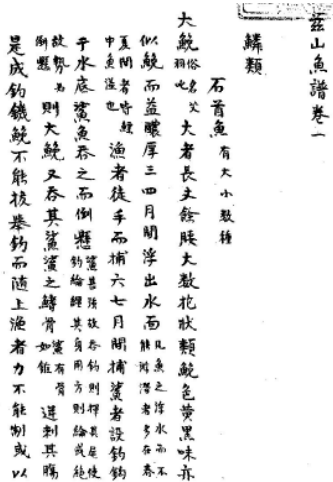 玆山魚譜卷一
鱗類
石首魚 有大小數種
大鮸 俗名艾羽叱 大者長丈餘腰大數抱狀類鮸色黃黑味亦
似鮸而益醲厚三四月間浮出水面 凡魚之浮水而不能游潛者多在春
夏間者皆鰾中氣溢也 漁者徒手而捕六七月間捕鯊者設釣鉤
于水底鯊魚吞之而倒懸 鯊善强故吞釣則揮其尾使釣綸纏其身用力則綸或絶
故勢必倒懸 則大鮸又吞其鯊鯊之鰭骨 鯊有骨如錐 逆刺其腸
是成鉤鐖鮸不能拔擧釣而隨上漁者力不能制或以